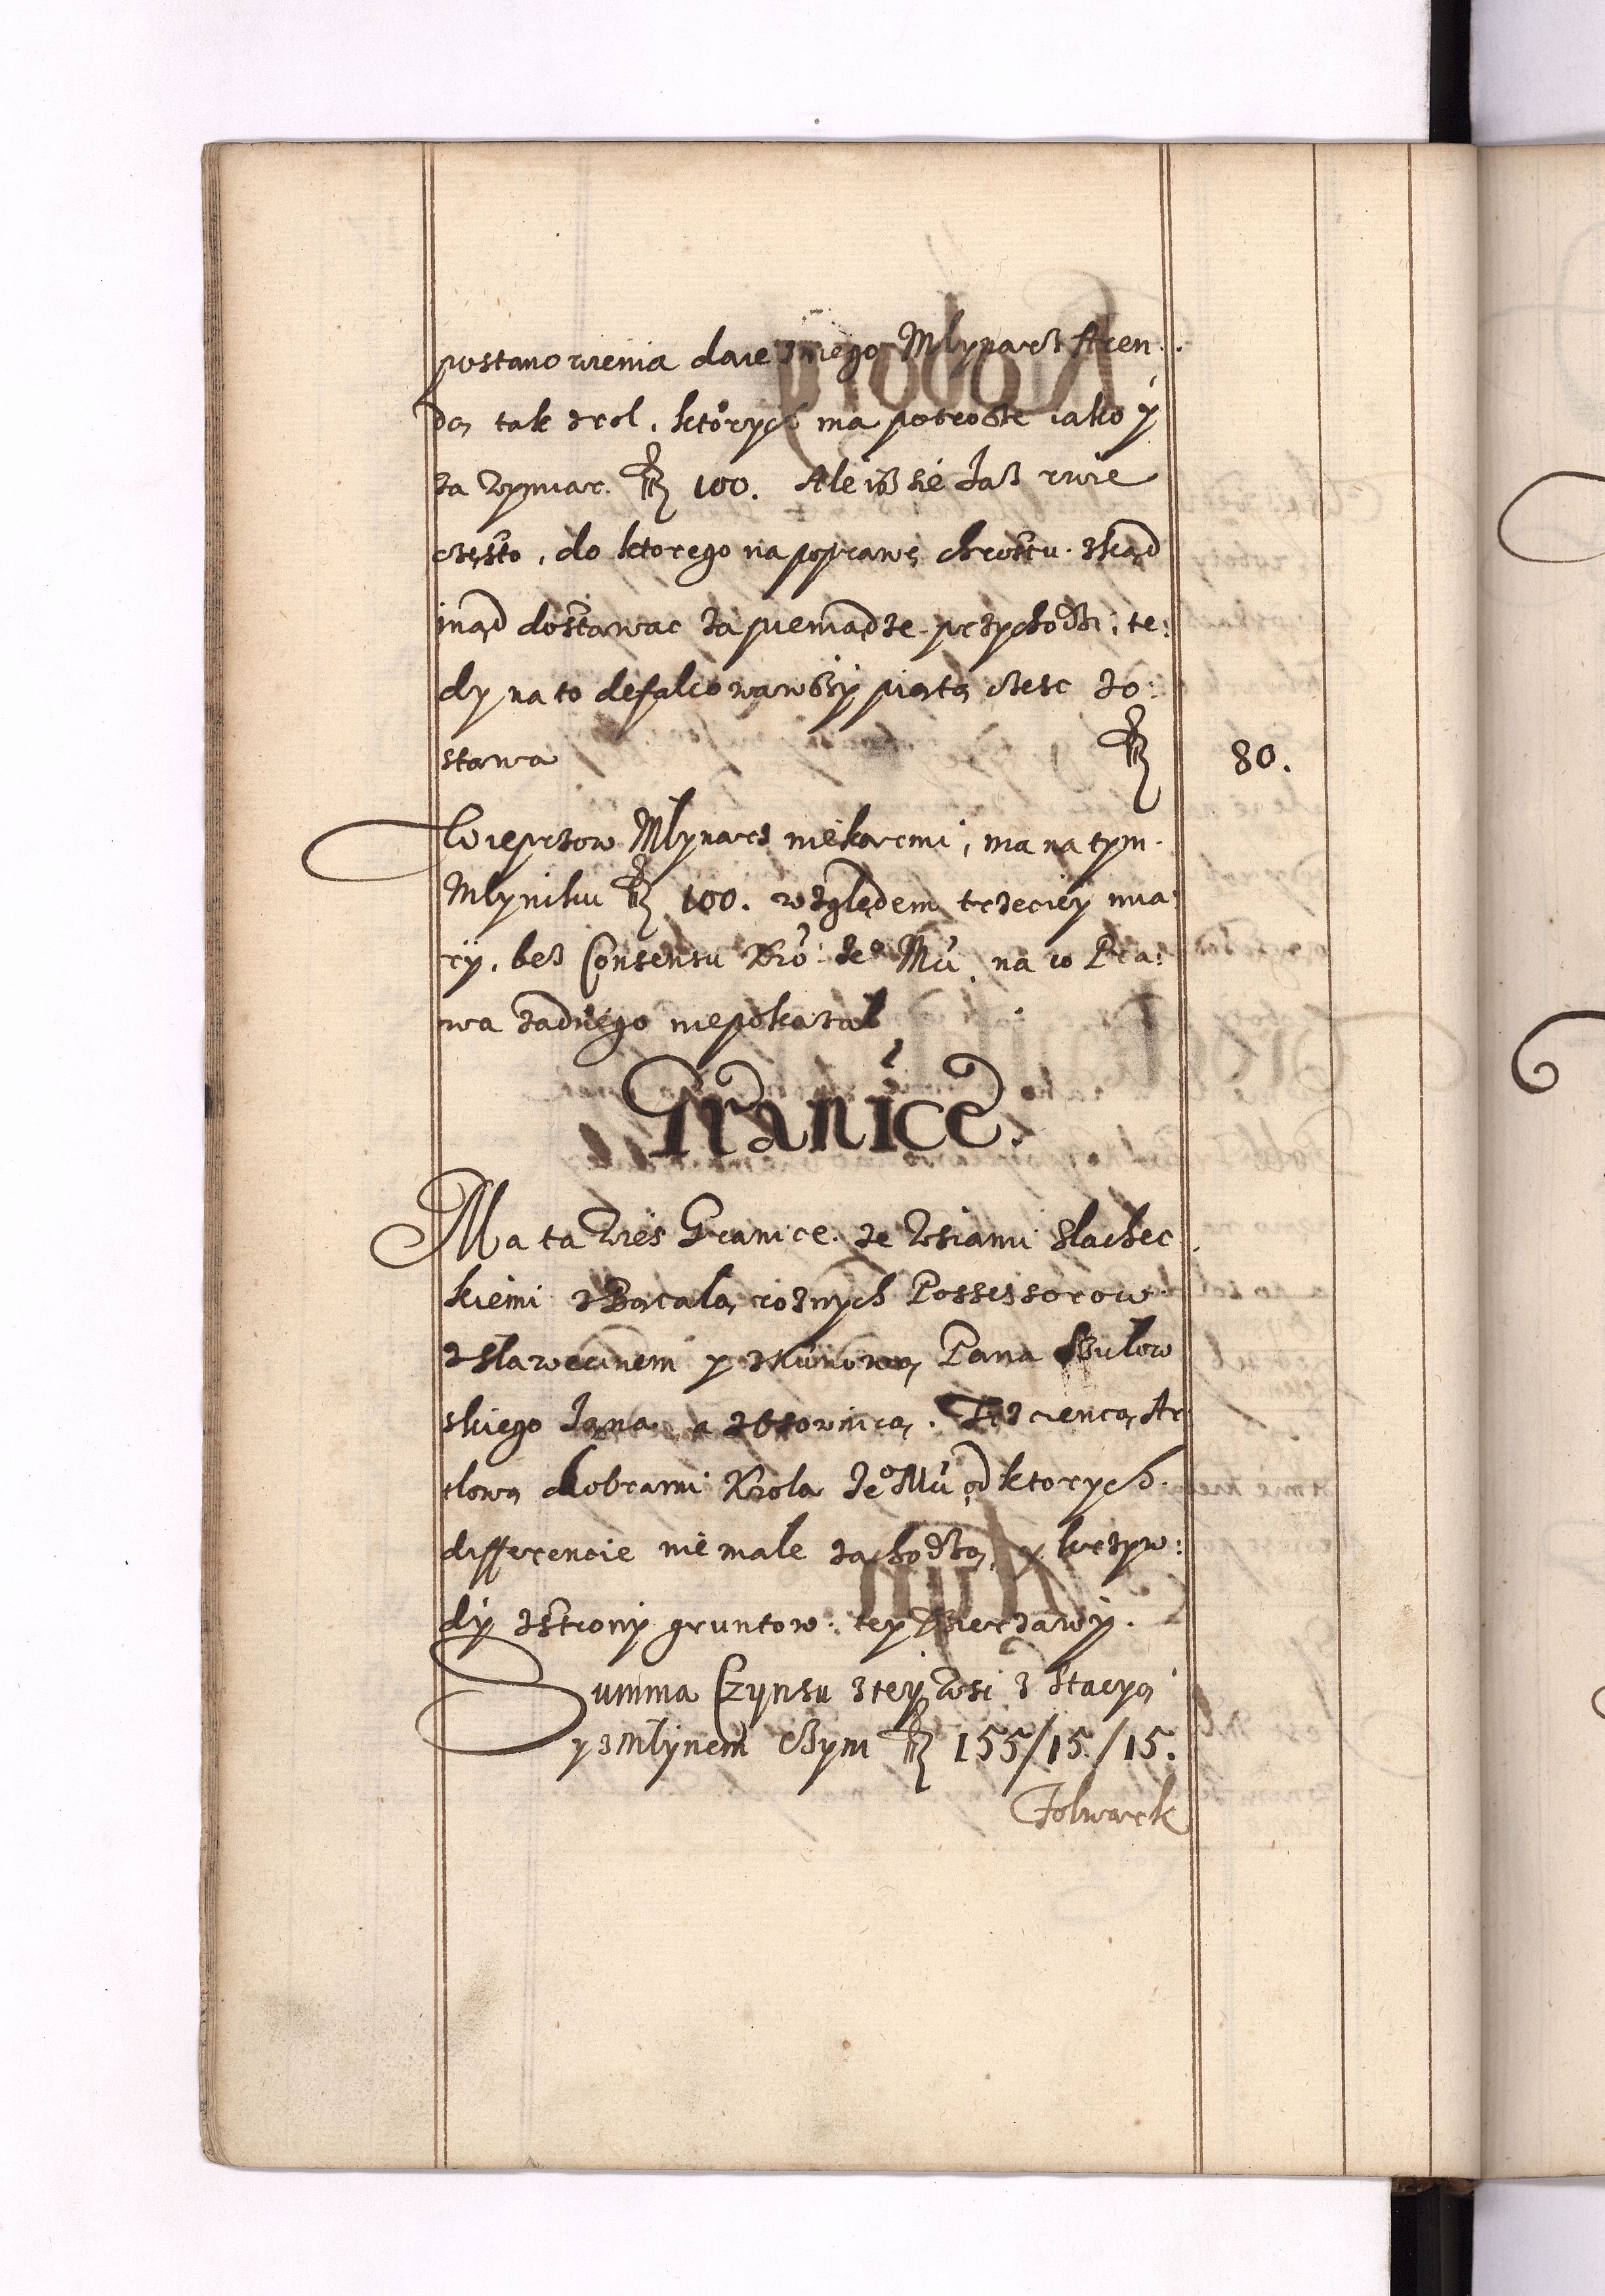 postanowienia daie z niego Mlynarz Aren
dą tak z rol, ktorych ma potrosze iako y
za wymiar. fl 100. Ale isz sie Jasz rwie
często, do ktorego na poprawę chrostu zkąd
inąd dostawac za pieniądze przychodzi, te:
dy na to defalcowawszy piątą częsc zo:
stawa fl 80.
Wieprzow Mlynarz niekarmi, ma na tym
Mlyniku fl 100. względem trzeciey mia:
ry, bez Consensu Kro: Jeo Mci, na co Pra:
wa żadnego niepokazal
Granice.
Ma ta Wies Granice ze Wsiami Slachec
kiemi z Bącalą rożnych Possessorow
z Slawecinem y z Kunową Pana
skiego Jana, a z Osownicą. Trzcienicą
clową dobrami Krola Jeo Mci od ktorych
differencie niemale zachodzą y krzyw:
dy z strony gruntow tey Dzierzawy.
Summa Czynszu z tey wsi z Stacyą
y z Mlynem czyni fl 155/15/15.
Folwark